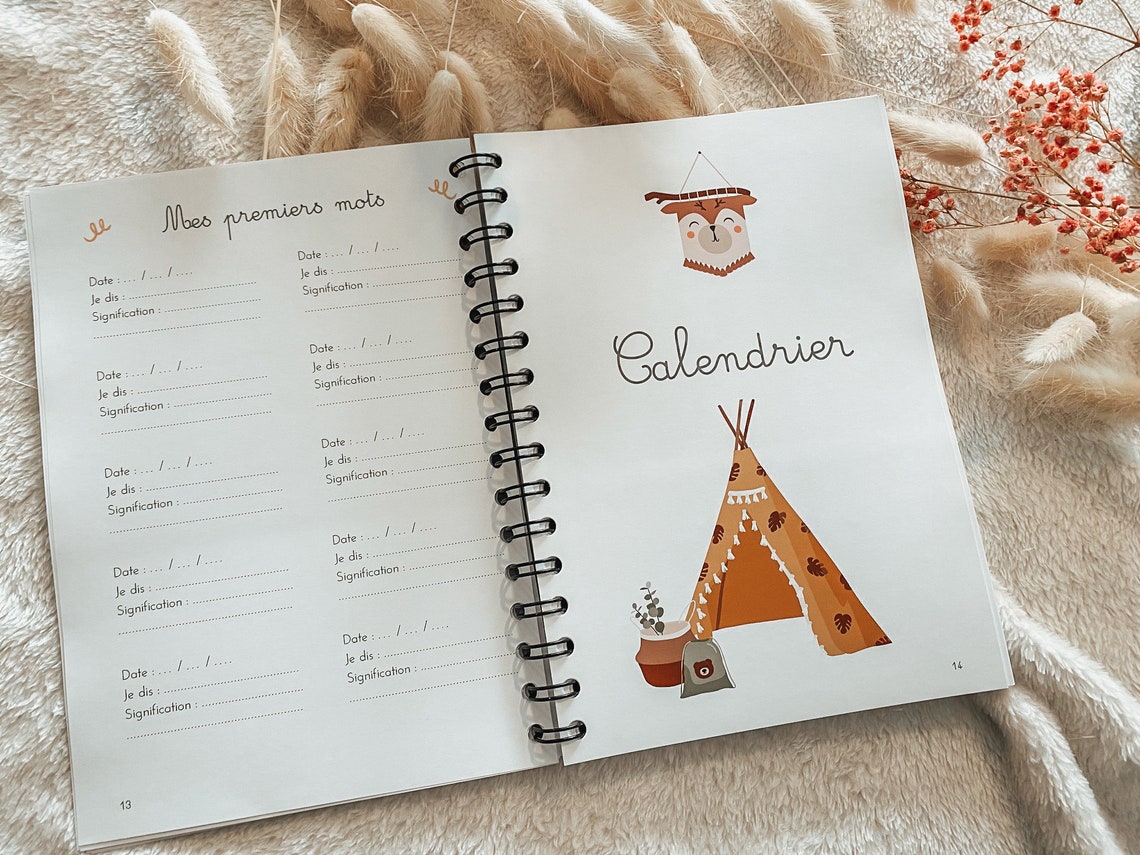 Mes premiers mots
Date : ... / ... / ....
Je dis : ..............................
Signification : ..............................
Date : ... / ... / ....
Je dis : ..............................
Signification : ..............................
Date : ... / ... / ....
Je dis : ..............................
Signification : ..............................
Date : ... / ... / ....
Je dis : ..............................
Signification : ..............................
Date : ... / ... / ....
Je dis : ..............................
Signification : ..............................
Date : ... / ... / ....
Je dis : ..............................
Signification : ..............................
Date : ... / ... / ....
Je dis : ..............................
Signification : ..............................
Date : ... / ... / ....
Je dis : ..............................
Signification : ..............................
Date : ... / ... / ....
Je dis : ..............................
Signification : ..............................
Date : ... / ... / ....
Je dis : ..............................
Signification : ..............................
13
Calendrier
14